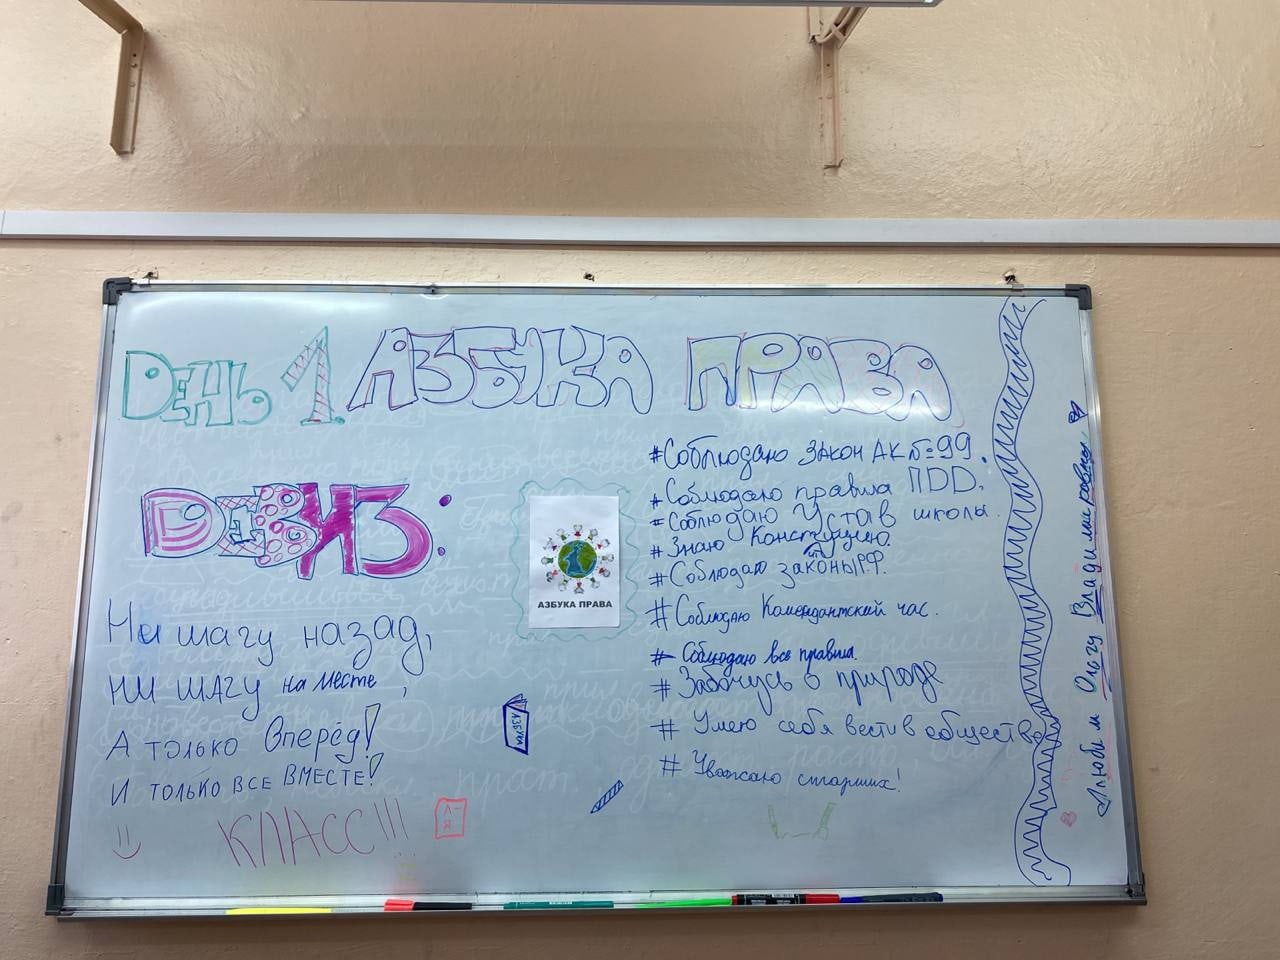 День 1 АЗБУКА ПРАВА
ДЕВИЗ:
Ни шагу назад,
ни шагу на месте,
А только Вперёд!
И только все ВМЕСТЕ!
КЛАСС!!!
А-Я
АЗБУКА ПРАВА
АЗБУКА
#Соблюдаю ЗАКОН АК №99.
#Соблюдаю правила ПДД.
#Соблюдаю Устав школы.
#Знаю Конституцию.
#Соблюдаю законы РФ.
#Соблюдаю Комендантский час.
#Соблюдаю все правила.
#Забочусь о природе
#Умею себя вести в обществе
#Уважаю старших!
Любим Ольгу Владимировну